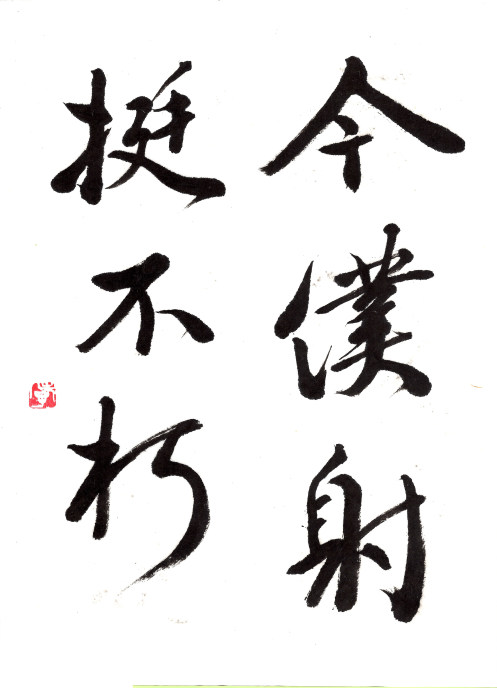 今僕射
挺不朽